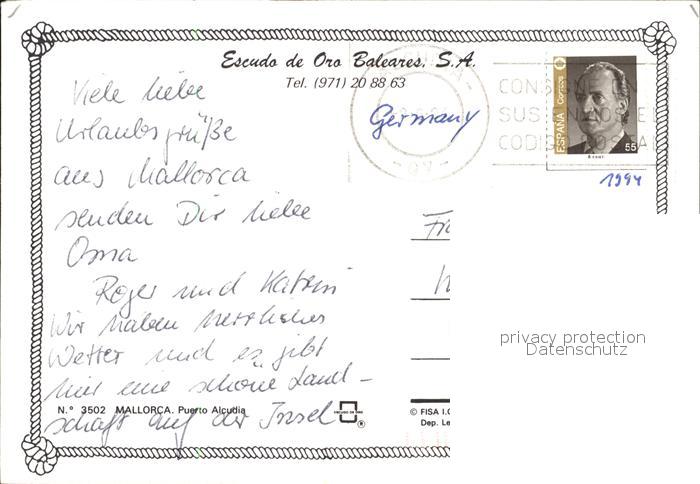 Escudo de Oro Baleares, S.A.
Tel. (971) 20 88 63
Viele liebe
Urlaubsgrüße
aus Mallorca
senden Dir liebe
Oma
Roger und Katrin
Wir haben herrliches
Wetter und es gibt
hier eine schöne Land-
schaft auf der Insel
Germany
CONSIGNE EN
SUS ENVIOS EL
CODIGO POSTAL
- 07 -
ESPAÑA Correos
55
1994
Fr
privacy protection
Datenschutz
N.º 3502 MALLORCA. Puerto Alcudia
ESCUDO DE ORO
®
© FISA I.G
Dep. Le